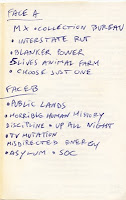 FACE A
MX • COLLECTION BUREAU
• INTERSTATE RUT
• BLANKER SOWER
5 LIVES ANIMAL FARM
• CHOOSE JUST ONE
FACE B
• PUBLIC LANDS
• HORRIBLE HUMAN HISTORY
DISCIPLINE • UP ALL NIGHT
• TV MUTATION
MISDIRECTED ENERGY
• ASYLUM • SOC